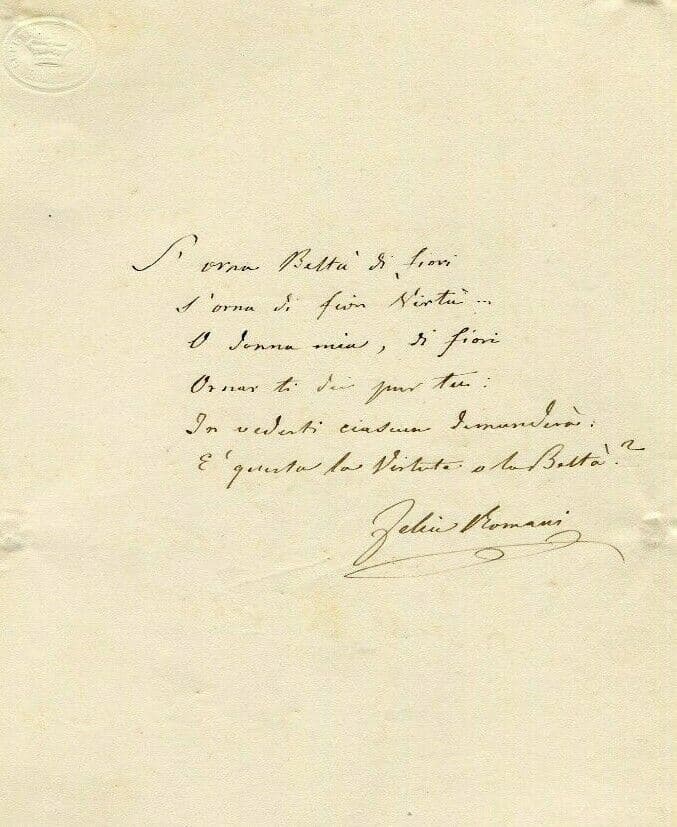 S'orna Beltà di fiori
S'orna di fior Virtù...
O donna mia, di fiori
Ornar ti dei pur tu:
In vederti ciascun domanderà:
E' questa la Virtute o la Beltà?
Felice Romani